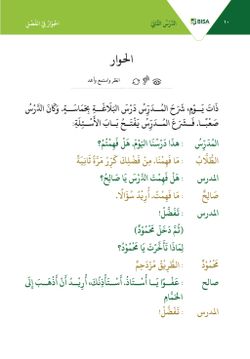 ١٠ BISA الدَّرْسُ الثَّانِي الحِوَارُ فِي الفَصْلِ
الحوار
انظر واستمع وأعد
ذَاتَ يَوْمٍ، شَرَحَ المُدَرِّسُ دَرْسَ البَلَاغَةِ بِحَمَاسَةٍ. وَكَانَ الدَّرْسُ
صَعْبًا. فَشَرَعَ المُدَرِّسُ يَفْتَحُ بَابَ الأَسْئِلَةِ.
المُدَرِّسُ : هذا دَرْسُنَا اليَوْمَ، هَلْ فَهِمْتُمْ؟
الطُّلَّابُ : مَا فَهِمْنَا، مِنْ فَضْلِكَ كَرِّرْ مَرَّةً ثَانِيَةً
المدرس : هَلْ فَهِمْتَ الدَّرْسَ يَا صَالِحُ؟
صَالِحٌ : مَا فَهِمْتُ، أُرِيْدُ سُؤَالًا.
المدرس : تَفَضَّلْ!
(ثُمَّ دَخَلَ مَحْمُوْدٌ)
لِمَاذَا تَأَخَّرْتَ يَا مَحْمُوْدُ؟
مَحْمُوْدٌ : الطَّرِيْقُ مُزْدَحِمٌ
صالح : عَفْوًا يَا أُسْتَاذُ، أَسْتَأْذِنُكَ، أُرِيْدُ أَنْ أَذْهَبَ إِلَى
الحَمَّامِ
المدرس : تَفَضَّلْ!